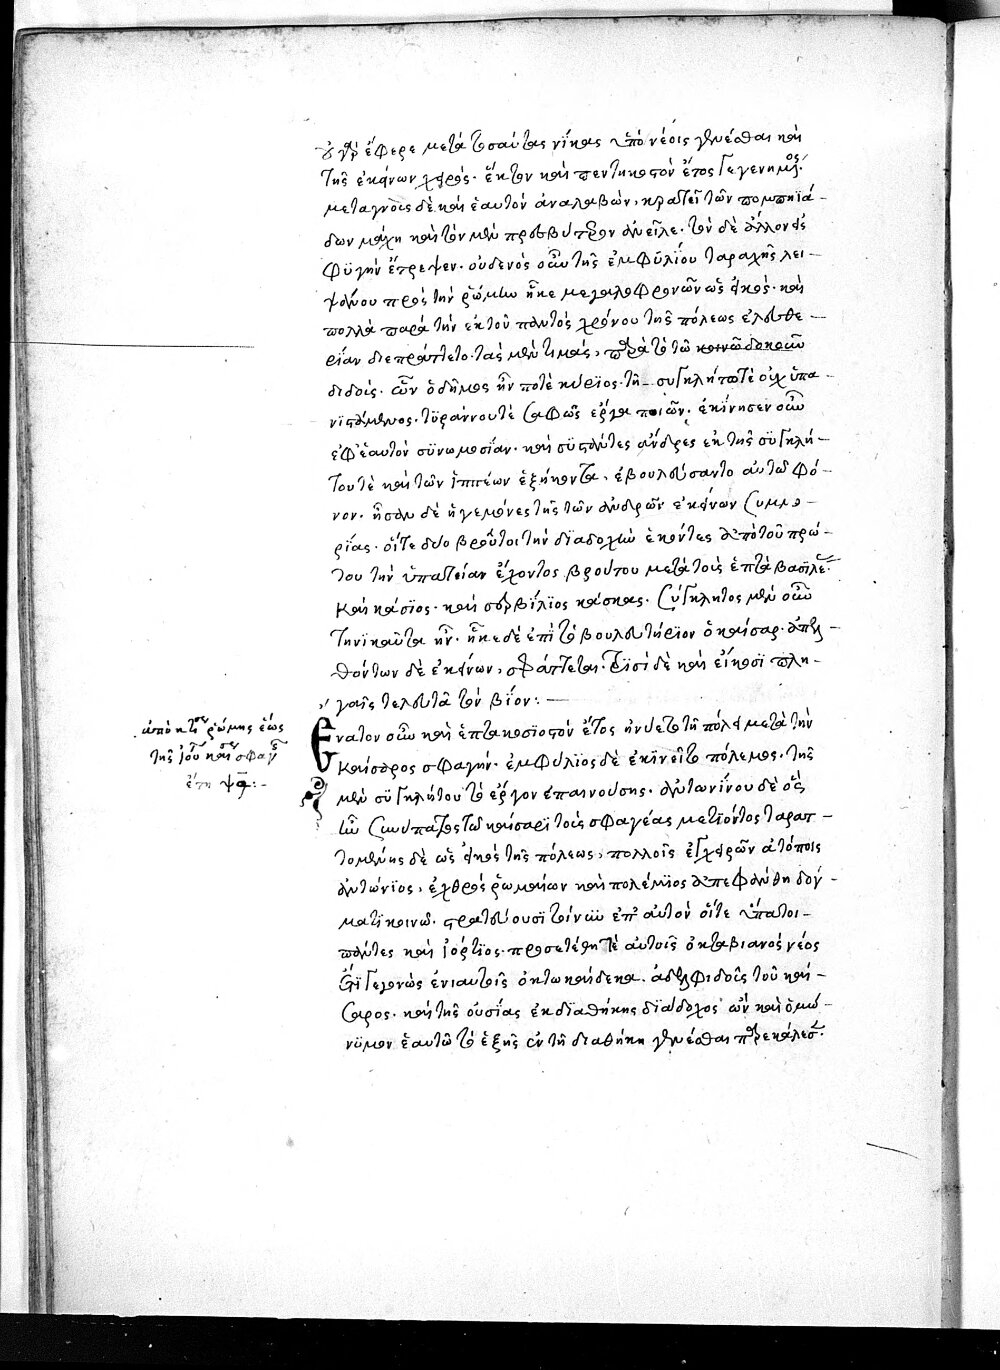 οὐ γὰρ ἔφερε μετὰ τοσαύτας νίκας ὑπὸ νέοις γενέσθαι καὶ
τῆς ἐκείνων χειρός. ἕκτον καὶ πεντηκοστὸν ἔτος γεγενημένος.
μεταγνοὺς δὲ καὶ ἑαυτὸν ἀναλαβὼν, κρατεῖ τῶν πομπηϊά-
δων μάχη καὶ τὸν μὲν πρεσβύτερον ἀνεῖλε. τὸν δὲ ἄλλον εἰς
φυγὴν ἔτρεψεν. οὐδενὸς οὖν τῆς ἐμφυλίου ταραχῆς λει-
ψάνου πρὸς τὴν ῥώμην ἧκε μεγαλοφρονῶν ὡς εἰκός. καὶ
πολλὰ παρὰ τὴν ἐκ τοῦ παντὸς χρόνου τῆς πόλεως ἐλευθε-
ρίαν διεπράττετο. τὰς μὲν τιμὰς, παρὰ τὸ τῶ κοινῶ δοκοῦν
διδούς. ὧν ὁ δῆμος ἦν ποτὲ κύριος. τῆ συγκλήτω τὲ οὐχ ὑπα-
νιστάμενος. τυράννου τὲ σαφῶς ἔργα ποιῶν. ἐκίνησεν οὖν
ἐφ' ἑαυτὸν συνωμοσίαν. καὶ συστάντες ἄνδρες ἐκ τῆς συγκλή-
του τὲ καὶ τῶν ἱππέων ἑξήκοντα, ἐβουλεύσαντο αὐτῶ φό-
νον. ἦσαν δὲ ἡγεμόνες τῆς τῶν ἀνδρῶν ἐκείνων συμμο-
ρίας. οἵτε δύο βροῦτοι τὴν διαδοχὴν ἕκοντες ἀπὸ τοῦ πρώ-
του τὴν ὑπατείαν ἔχοντος βρούτου μετὰ τοὺς ἑπτὰ βασιλεῖς.
καὶ κάσιος. καὶ σερβίλιος κάσκας. σύγκλητος μὲν οὖν
τηνικαῦτα ἦν. ἧκε δὲ ἐπὶ τὸ βουλευτήριον ὁ καῖσαρ. ἀπελ-
θόντων δὲ ἐκείνων, σφάττεται. τρισὶ δὲ καὶ εἴκοσι πλη-
γαῖς τελευτᾶ τὸν βίον:-
Ενατον οὖν καὶ ἑπτακοσιοστὸν ἔτος ἠνύετο τῆ πόλει μετὰ τὴν
καίσαρος σφαγήν. ἐμφύλιος δὲ ἐκινεῖτο πόλεμος. τῆς
μὲν συγκλήτου τὸ ἔργον ἐπαινούσης. ἀντωνίνου δὲ ὃς
ἦν συνύπατος τῶ καίσαρι τοὺς σφαγέας μετιόντος ταρατ-
τομένης δὲ ὡς εἰκὸς τῆς πόλεως, πολλοῖς ἐγχειρῶν ἀτόποις
ἀντώνιος, ἐχθρὸς ῥωμαίων καὶ πολέμιος ἀπεφάνθη δόγ-
ματι κοινῶ. στρατεύουσι τοίνυν ἐπ' αὐτὸν οἵτε ὕπατοι
πάντες καὶ ἱόρτιος. προσετέθη τὲ αὐτοῖς ὀκταβιανὸς νέος
ἔτι γεγονὼς ἐνιαυτοὺς ὀκτωκαίδεκα. ἀδελφιδοῦς τοῦ καί-
σαρος. καὶ τῆς οὐσίας ἐκ διαθήκης διάδοχος ὢν καὶ ὁμώ-
νυμον ἑαυτῶ τὸ ἑξῆς ἐν τῆ διαθήκη γενέσθαι παρεκάλεσεν.
ἀπὸ κτίσεως ῥώμης ἕως
τῆς ἰουλίου καίσαρος σφαγῆς
ἔτη ψθ:-